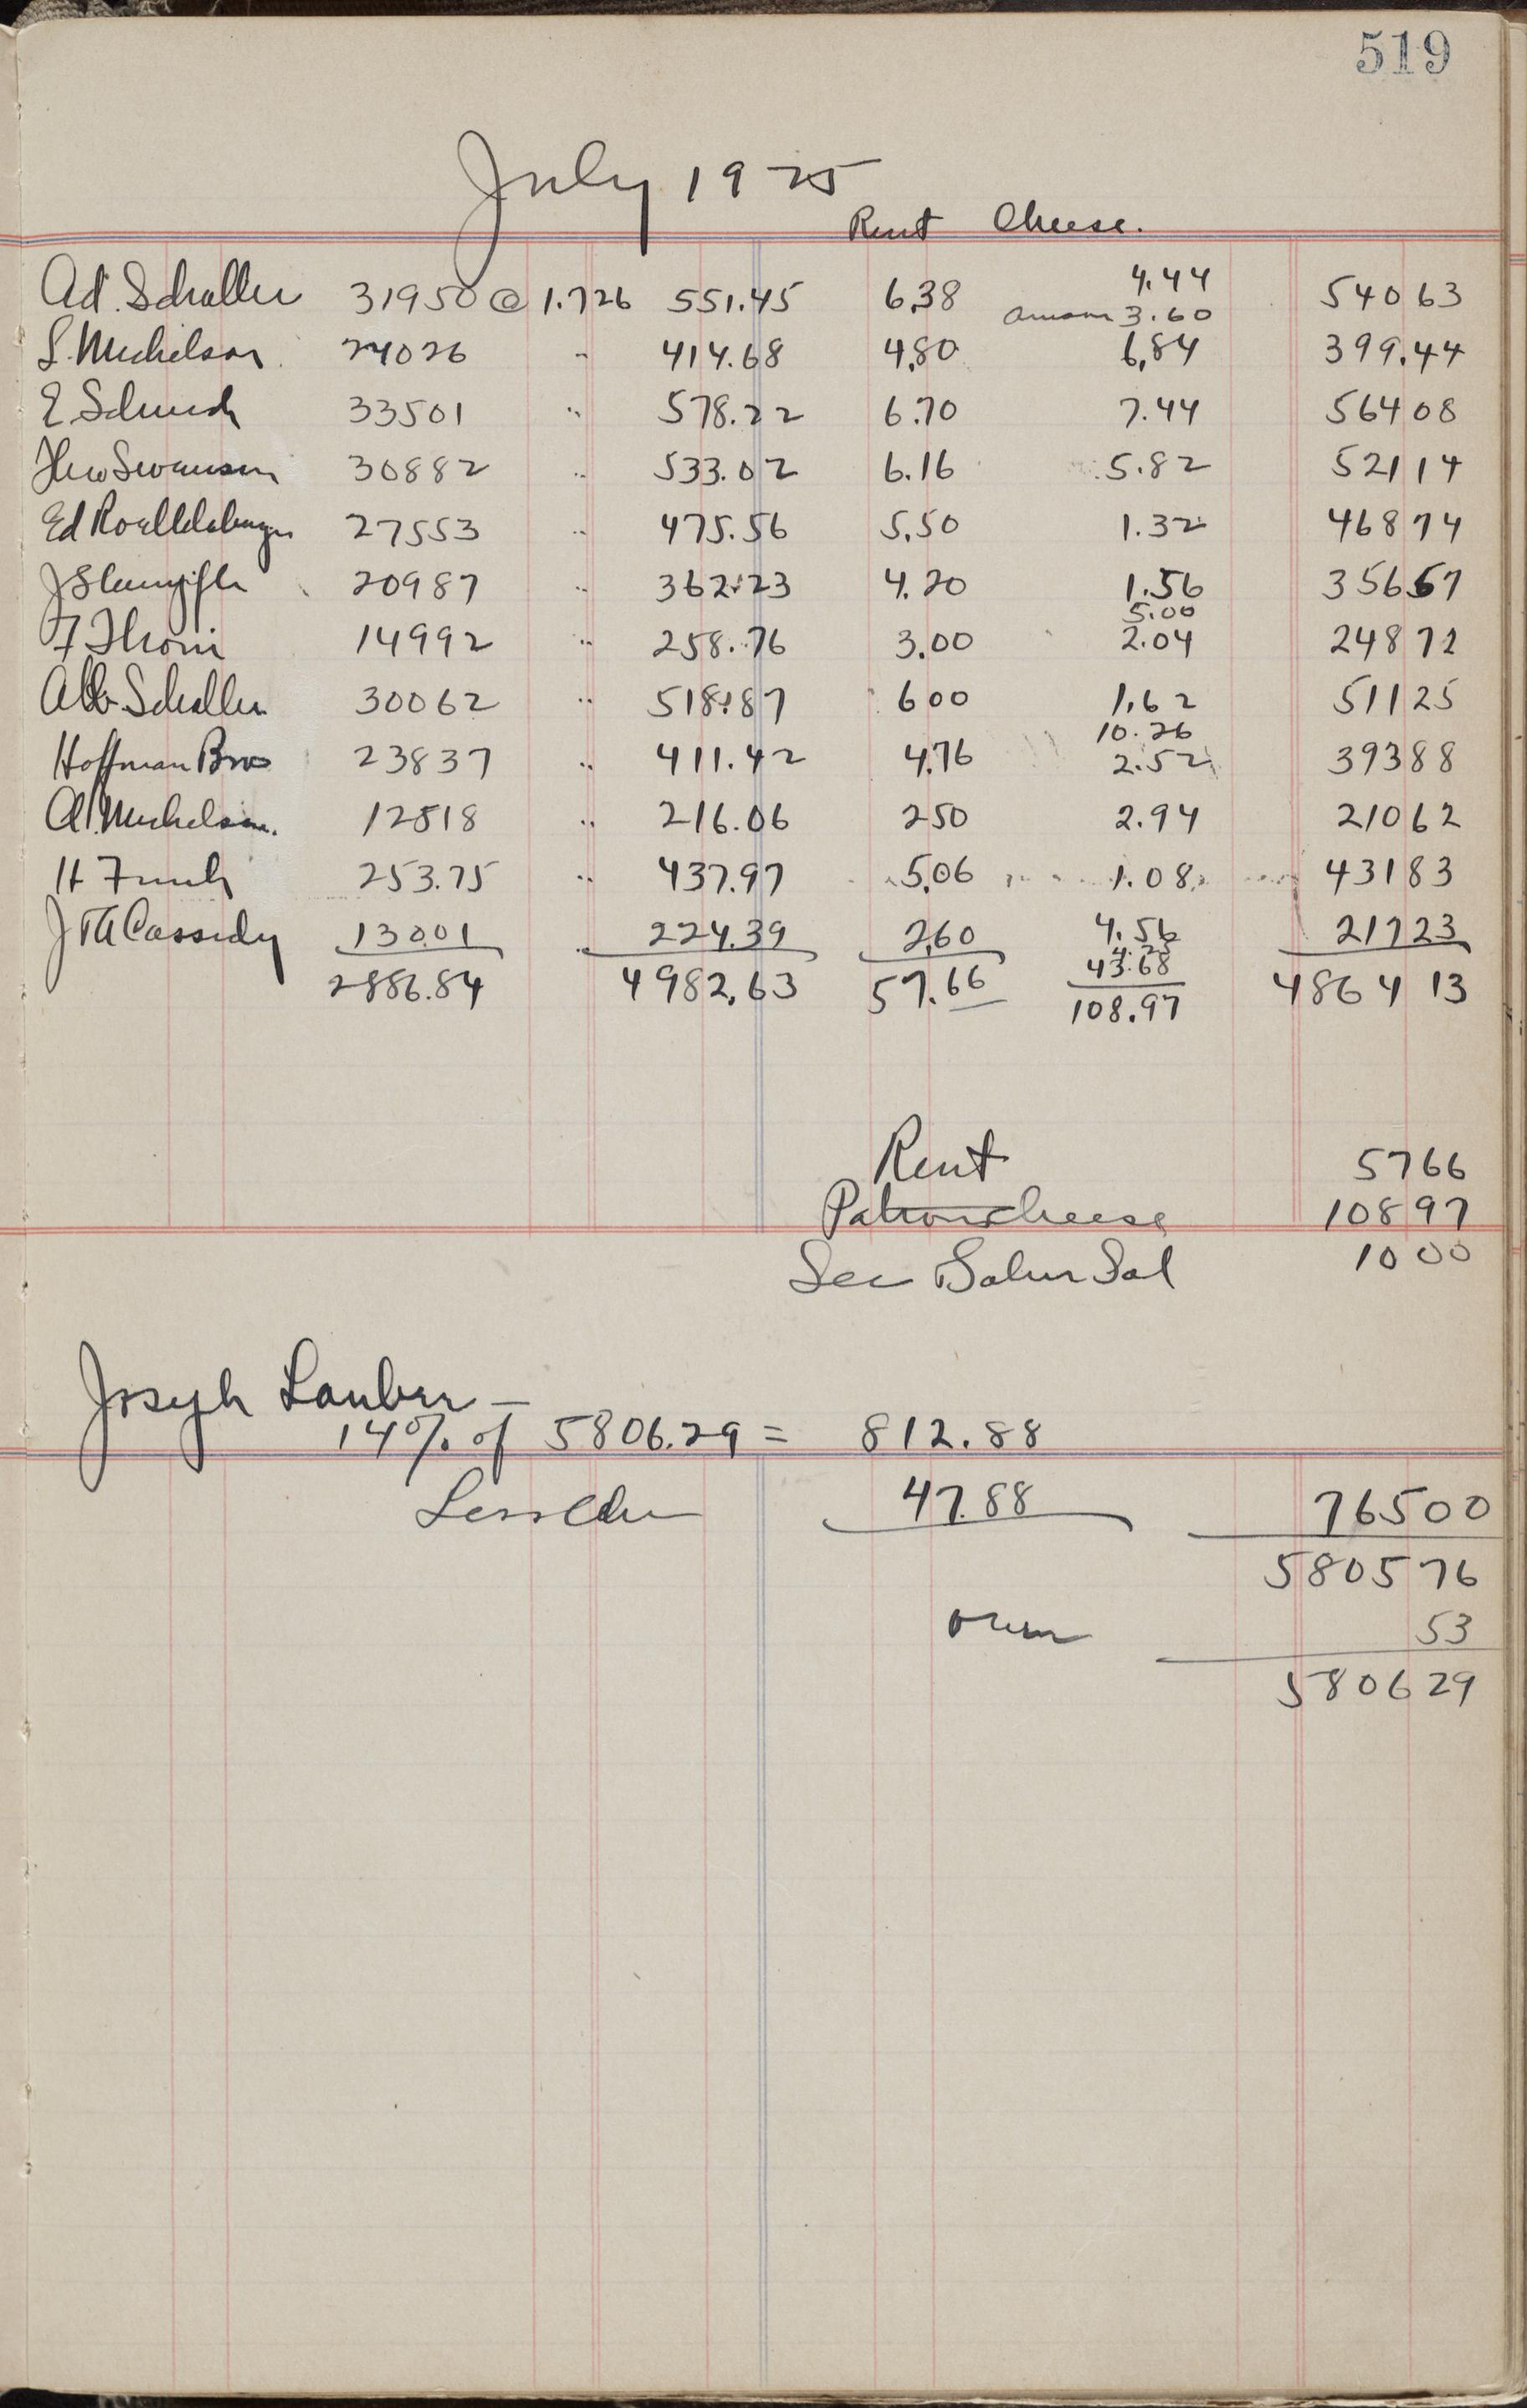 519
July 1925
Rent Cheese.
4.44
Ad. Schaller 31950 @ 1.726 551.45 6.38 54063
3.60
S. Michelson 24026 " 414.68 4.80 6.84 399.44
E 33501 " 578.22 6.70 7.44 56408
Swanson 30882 " 533.02 6.16 5.82 52114
Ed 27553 " 475.56 5.50 1.32 46874
J 20987 " 362.23 4.20 1.56 35657
5.00
F Thoni 14992 " 258.76 3.00 2.04 24872
Alb Schaller 30062 " 518.87 600 1.62 51125
10.26
Hoffman Bros 23837 " 411.42 4.76 2.52 39388
A. Michelson. 12518 " 216.06 250 2.94 21062
H Funk 253.75 " 437.97 5.06 1.08 43183
J Cassidy 130.01 " 224.39 2.60 4.56 21723
4.25
43.68
2886.84 4982.63 57.66 4864 13
108.97
Rent 5766
Patrons cheese 10897
Sec Sal 1000
Joseph Lauber –
14% of 5806.29 = 812.88
Less 47.88 76500
580576
over 53
580629